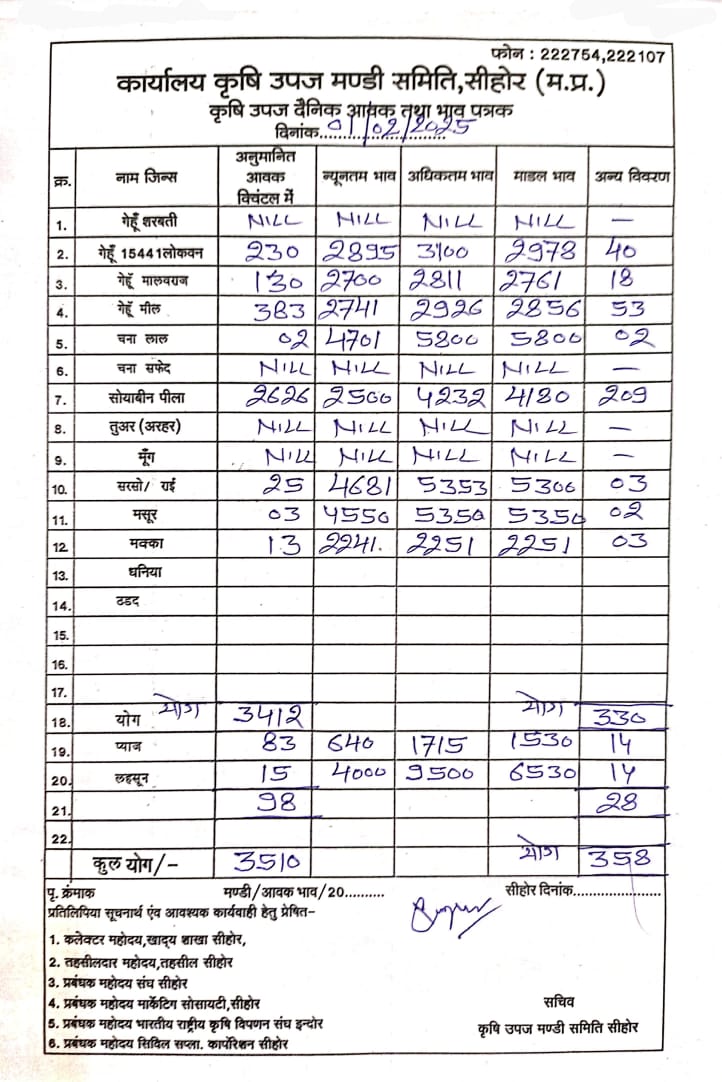 फोन : 222754,222107
कार्यालय कृषि उपज मण्डी समिति,सीहोर (म.प्र.)
कृषि उपज दैनिक आवक तथा भाव पत्रक
दिनांक...01/02/2025...
क्र. नाम जिन्स अनुमानित आवक क्विंटल में न्यूनतम भाव अधिकतम भाव माडल भाव अन्य विवरण
1. गेहूँ शरबती NILL NILL NILL NILL —
2. गेहूँ 15441लोकवन 230 2895 3100 2978 40
3. गेहूँ मालवराज 130 2700 2811 2761 18
4. गेहूँ मील 383 2741 2926 2856 53
5. चना लाल 02 4701 5800 5800 02
6. चना सफेद NILL NILL NILL NILL —
7. सोयाबीन पीला 2626 2500 4232 4180 209
8. तुअर (अरहर) NILL NILL NILL NILL —
9. मूँग NILL NILL NILL NILL —
10. सरसो/ राई 25 4681 5353 5300 03
11. मसूर 03 4550 5350 5350 02
12. मक्का 13 2241. 2251 2251 03
13. धनिया
14. उडद
15.
16.
17.
18. योग योग 3412 योग 330
19. प्याज 83 640 1715 1530 14
20. लहसून 15 4000 9500 6530 14
21. 98 28
22.
कुल योग/- 3510 योग 358
पृ. क्रंमाक मण्डी/आवक भाव/20.......... सीहोर दिनांक......................
प्रतिलिपिया सूचनार्थ एंव आवश्यक कार्यवाही हेतु प्रेषित-
1. कलेक्टर महोदय,खाद्य शाखा सीहोर,
2. तहसीलदार महोदय,तहसील सीहोर
3. प्रबंघक महोदय संघ सीहोर
4. प्रबंघक महोदय मार्केटिग सोसायटी,सीहोर
5. प्रबंघक महोदय भारतीय राष्ट्रीय कृषि विपणन संघ इन्दोर
6. प्रबंघक महोदय सिविल सप्ला. कार्पोरेशन सीहोर
सचिव
कृषि उपज मण्डी समिति सीहोर